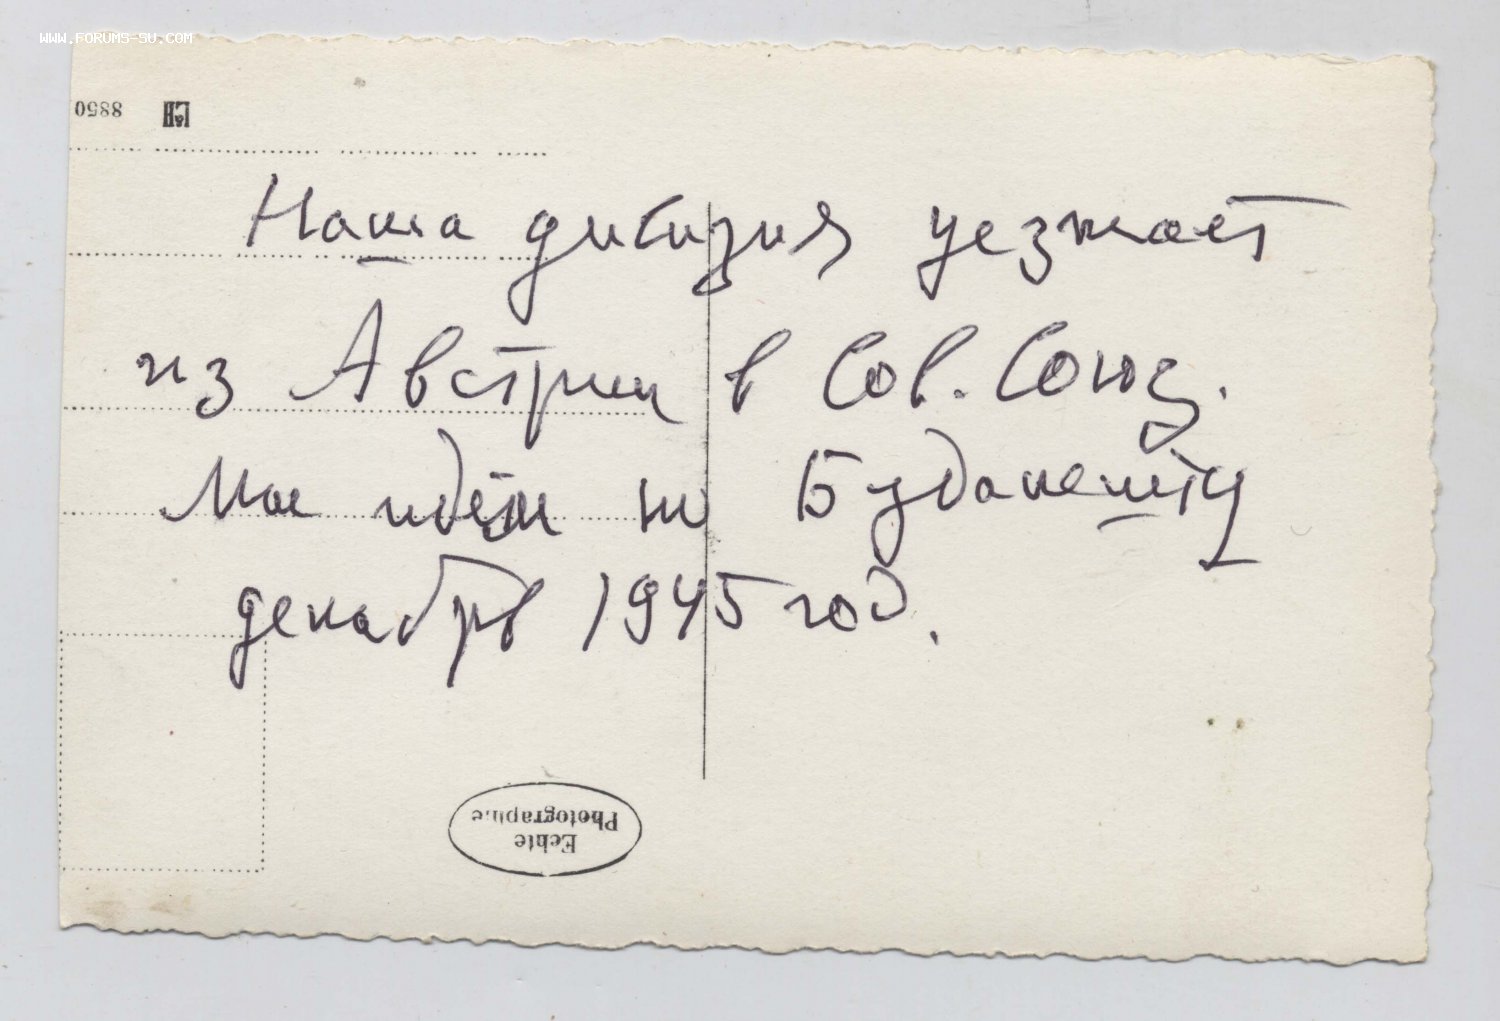 WWW.FORUMS-SU.COM
8850
Наша дивизия уезжает
из Австрии в Сов. Союз.
Мы идём по Будапешту
декабрь 1945 год.
Echte
Photographie